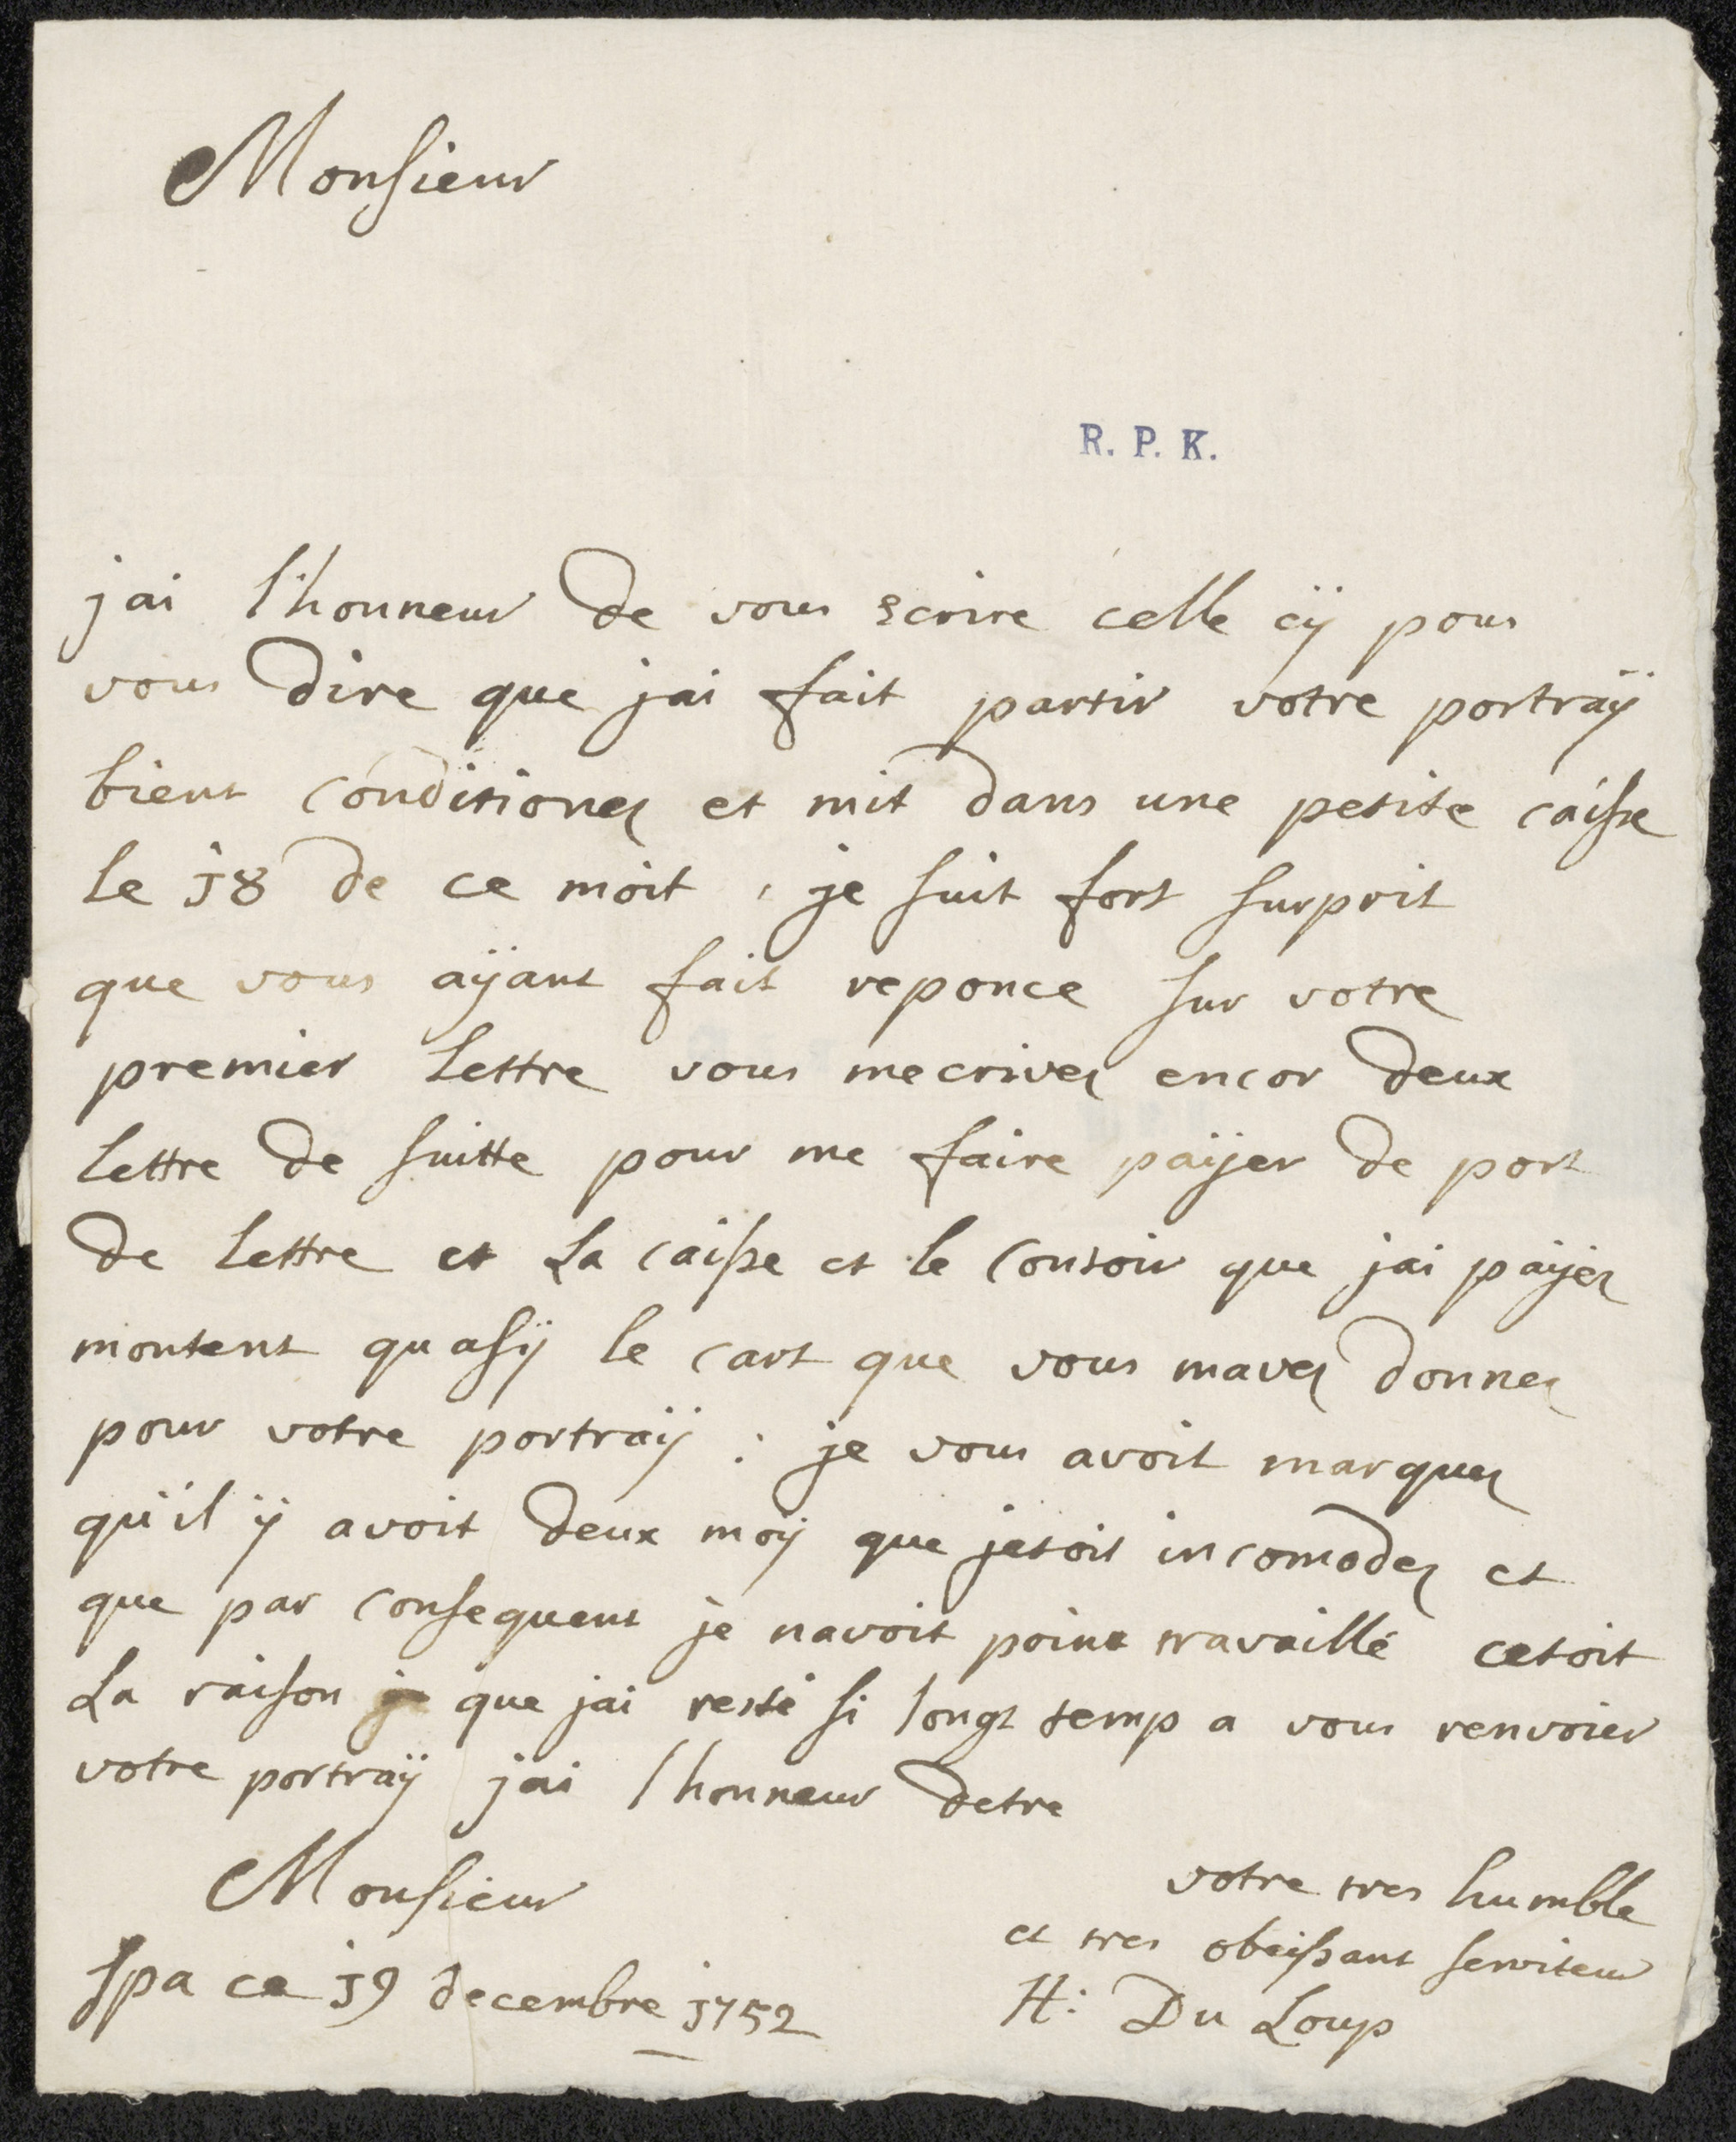 Monsieur
R. P. K.
jai l'honneur de vous ecrire celle cÿ pour
vous dire que jai fait partir votre portraÿ
bient conditionez et mit dans une petite caisse
le 18 de ce moit, je suit fort surprit
que vous aÿant fait reponce sur votre
premier lettre vous mecrivez encor deux
lettre de suitte pour me faire paÿer de port
de lettre et La caisse et le contoir que jai paÿez
montent quasÿ le cart que vous mavez donnez
pour votre portraÿ : je vous avoit marquez
qu'il ÿ avoit deux moÿ que jetoit incomodez et
que par consequent je navoit point travaillé cetoit
La raison que jai resté si longt temp a vous renvoier
votre portraÿ jai l honneur detre
Monsieur
votre tres humble
et tres obeissant serviteur
Spa ce 19 decembre 1752
H: Du Loup